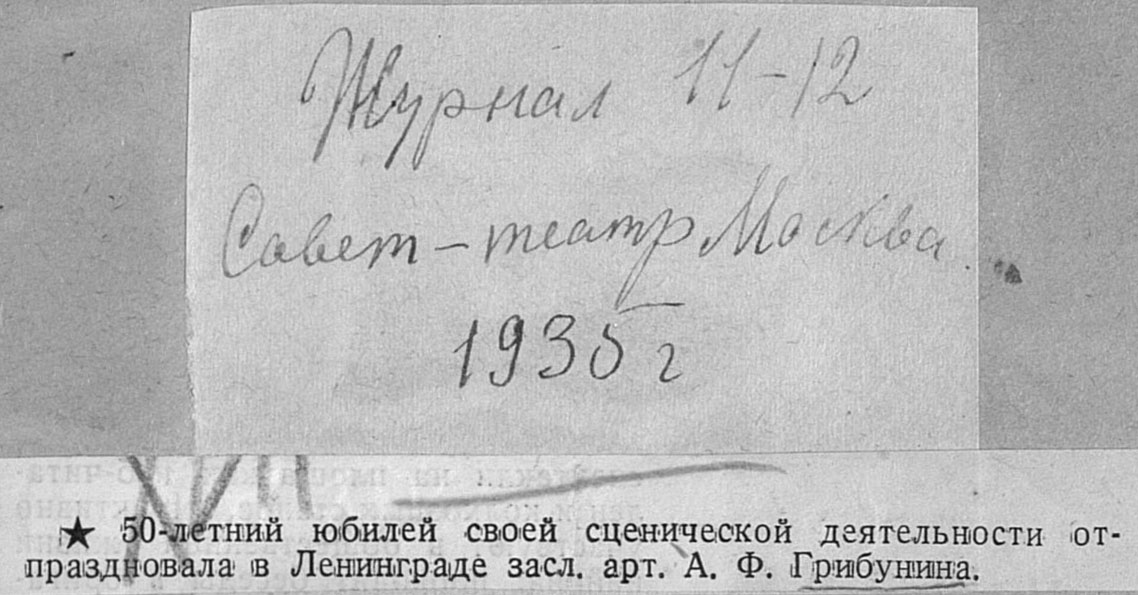 Журнал 11-12
Совет-театр Москва.
1935 г
★ 50-летний юбилей своей сценической деятельности от-
праздновала в Ленинграде засл. арт. А. Ф. Грибунина.